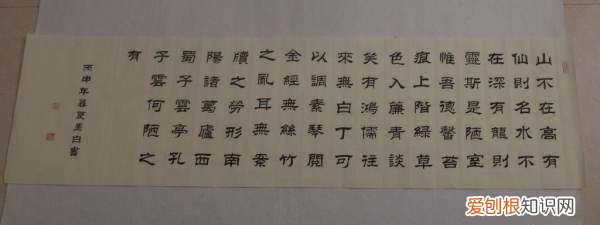 山不在高有
仙則名水不
在深有龍則
靈斯是陋室
惟吾德馨苔
痕上階緑草
色入簾青談
笑有鴻儒往
來無白丁可
以調素琴閲
金經無絲竹
之亂耳無案
牘之勞形南
陽諸葛廬西
蜀子雲亭孔
子雲何陋之
有
丙申年暮夏白書
爱刨根知识网